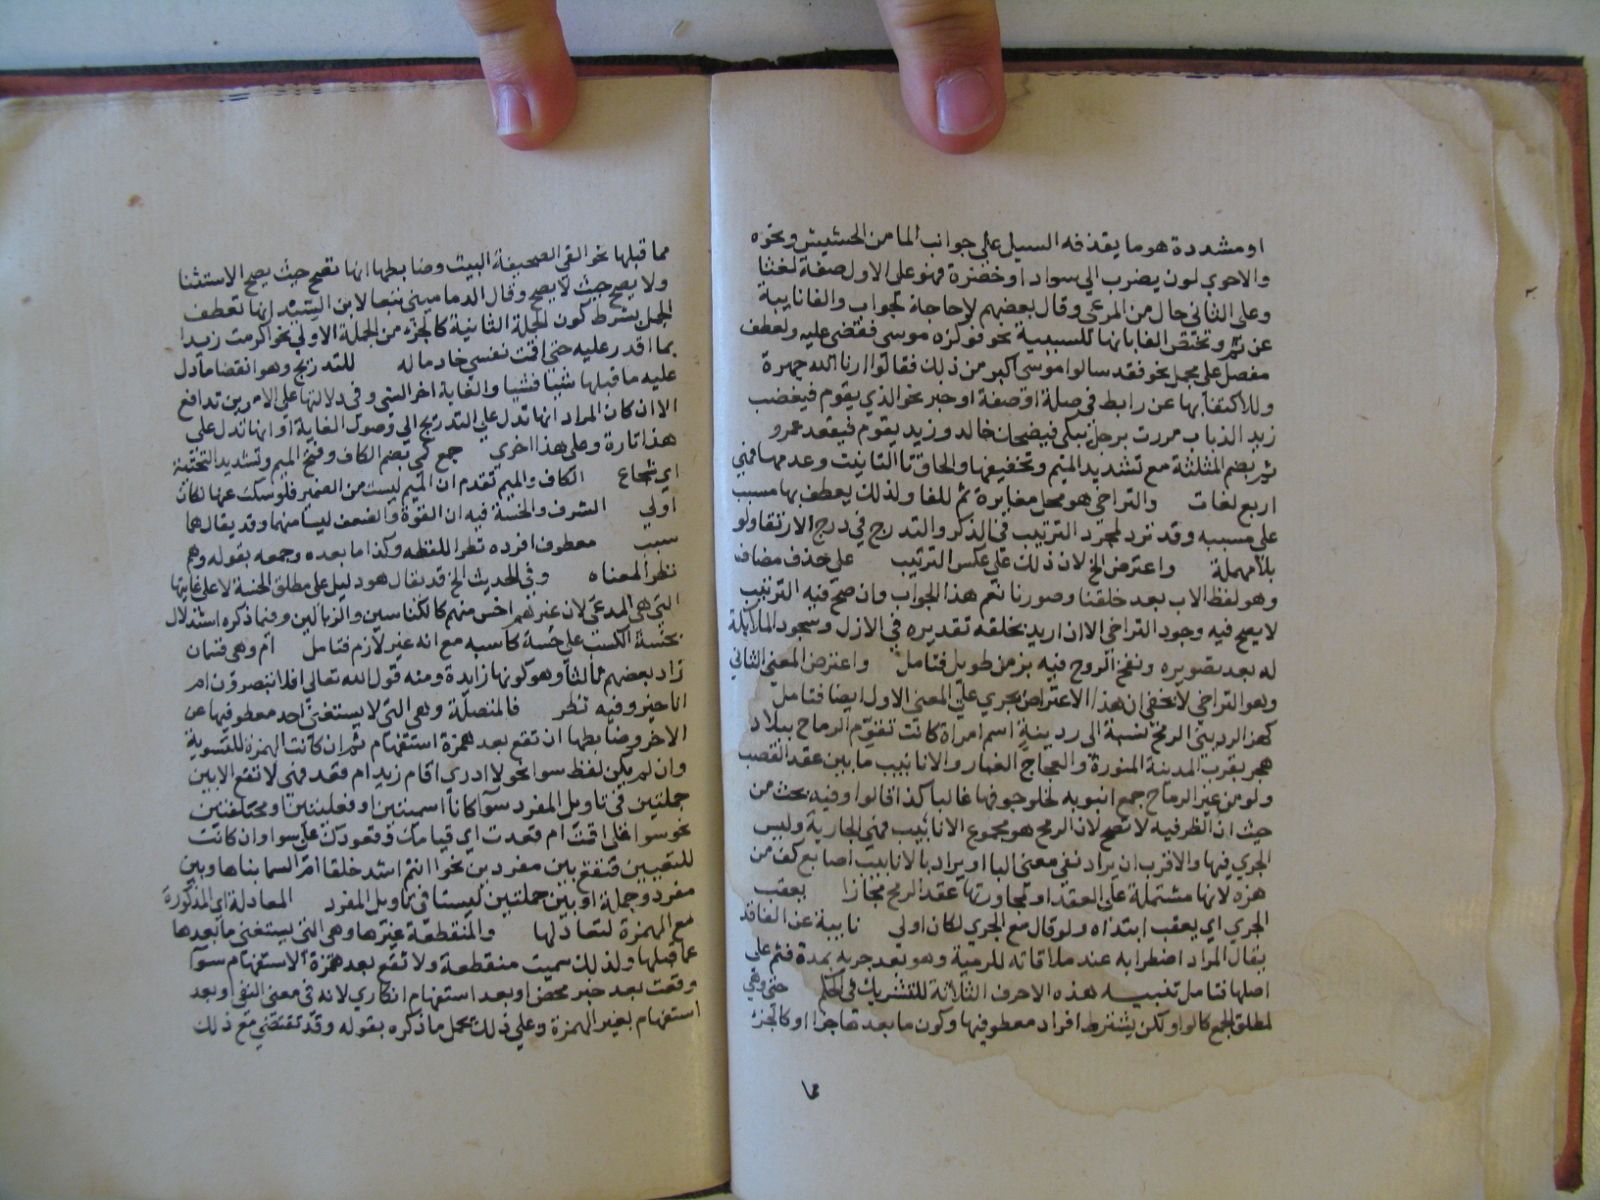 او مشددة هو ما يقذفه السيل على جوانب الما من الحشيش ونحوه
والاحوي لون يضرب الي سواد او خضرة فهو على الاول صفة لغثا
وعلى الثاني حال من المرعى وقال بعضهم لاحاجة لجواب والفا نايبة
عن ثم وتختص الفا بانها للسببية نحو فوكزه موسى فقضى عليه ولعطف
مفصل على مجمل نحو فقد سالوا موسى اكبر من ذلك فقالوا ارنا الله جهرة
وللاكتفا بها عن رابط في صلة او صفة او خبر نحو الذي يقوم فيغضب
زيد الذباب مررت برجل يبكي فيضحك خالد وزيد يقوم فيقعد عمرو
ثم بضم المثلثة مع تشديد الميم وتخفيفها والحاق تا التانيث وعدمها فهي
اربع لغات والتراخي هو محل مغايرة ثم للفا ولذلك يعطف بها مسبب
على مسببه وقد ترد لمجرد الترتيب في الذكر والتدرج في درج الارتقا ولو
بلا مهملة واعترض الخ لان ذلك على عكس الترتيب على حذف مضاف
وهو لفظ الاب بعد خلقنا وصورنا نعم هذا الجواب وان صح فيه الترتيب
لا يصح فيه وجود التراخي الا ان اريد بخلقه تقديره في الازل وسجود الملايكة
له بعد تصويره ونفخ الروح فيه بزمن طويل فتامل واعترض المعنى الثاني
وهو التراخي لا يخفى ان هذا الاعتراض يجري على المعنى الاول ايضا فتامل
كهز الرديني الرمح نسبة الى ردينة اسم امراة كانت تقوم الرماح ببلاد
هجر بقرب المدينة المنورة والعجاج الغبار والانابيب ما بين عقد القصب
ولو من غير الرماح جمع انبوبه لخلو جوفها غالبا كذا قالوا وفيه بحث من
حيث ان الظرفيه لا تصح لان الرمح هو مجموع الانابيب فهي الجارية وليس
الجري فيها والاقرب ان يراد بفي معنى البا او يراد بالانابيب اصابع كف من
هزه لانها مشتملة على العقد او لمجاورتها عقد الرمح مجازا يعقب
الجري اي يعقب ابتداه ولو قال مع الجري لكان اولى نايبة عن الفا قد
يقال المراد اضطرابه عند ملاقاته للرمية وهو بعد جريه بمدة فثم على
اصلها فتامل تنبيه هذه الاحرف الثلاثة للتشريك في الحكم حتى وهي
لمطلق الجمع كالواو لكن يشترط افراد معطوفها وكون ما بعدها جزا او كالجزء
مما
مما قبلها نحو القى الصحيفة البيت وضابطها انها تصح حيث يصح الاستثنا
ولا يصح حيث لا يصح وقال الدماميني تبعا لابن السيد انها تعطف
الجمل بشرط كون الجملة الثانية كالجزء من الجملة الاولى نحو اكرمت زيدا
بما اقدر عليه حتى اقمت نفسي خادما له للتدريج وهو انقضا ما دل
عليه ما قبلها شيا فشيا والغاية اخر الشي وفي دلالتها على الامرين تدافع
الا ان كان المراد انها تدل على التدريج الى وصول الغاية او انها تدل على
هذا تارة وعلى هذا اخري جمع كمي بضم الكاف وفتح الميم وتشديد التحتية
اي شجاع الكاف والميم تقدم ان الميم ليست من الضمير فلو سكت عنها لكان
اولي الشرف والخسة فيه ان القوة والضعف ليسا منهما وقد يقال هما
سبب معطوف افرده نظرا للفظه وكذا ما بعده وجمعه بقوله وهم
نظرا لمعناه وفي الحديث الخ قد يقال هو دليل على مطلق الخسة لا على غايتها
التي هي المدعى لان غيرهم اخس منهم كالكناسين والزبالين وفيما ذكره استدلال
بخسة الكسب على خسة كاسبه مع انه غير لازم فتامل ام وهي قسمان
زاد بعضهم ثالثا وهو كونها زايدة ومنه قول الله تعالى افلا تبصرون ام
انا خير وفيه نظر فالمتصلة وهي التي لا يستغني احد معطوفيها عن
الاخر وضابطها ان تقع بعد همزة استفهام ثم ان كانت الهمزة للتسوية
وان لم يكن لفظ سوا نحو لا ادري اقام زيد ام قعد فهي لا تقع الا بين
جملتين في تاويل المفرد سوا كانا اسميتين او فعليتين او مختلفتين
نحو سوا على اقمت ام قعدت اي قيامك وقعودك على سوا وان كانت
للتعيين فتقع بين مفردين نحو اانتم اشد خلقا ام السما بناها وبين
مفرد وجملة او بين جملتين ليستا في تاويل المفرد المعادلة اي المذكورة
مع الهمزة لتعادلها والمنقطعة غيرها وهي التي يستغني ما بعدها
عما قبلها ولذلك سميت منقطعة ولا تقع بعد همزة الاستفهام سوا
وقعت بعد خبر محض او بعد استفهام انكاري لانه في معنى النفي او بعد
استفهام بغير الهمزة وعلي ذلك يحمل ما ذكره بقوله وقد تقتضي مع ذلك